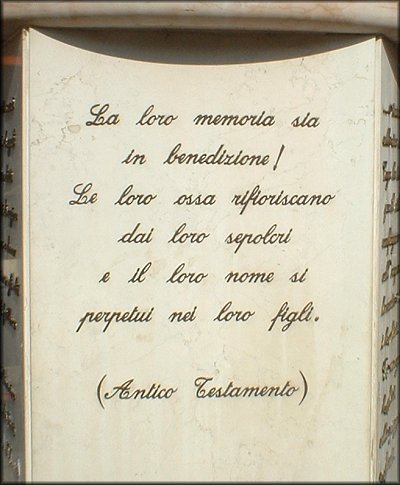 La loro memoria sia
in benedizione!
Le loro ossa rifioriscano
dai loro sepolcri
e il loro nome si
perpetui nei loro figli.
(Antico Testamento)